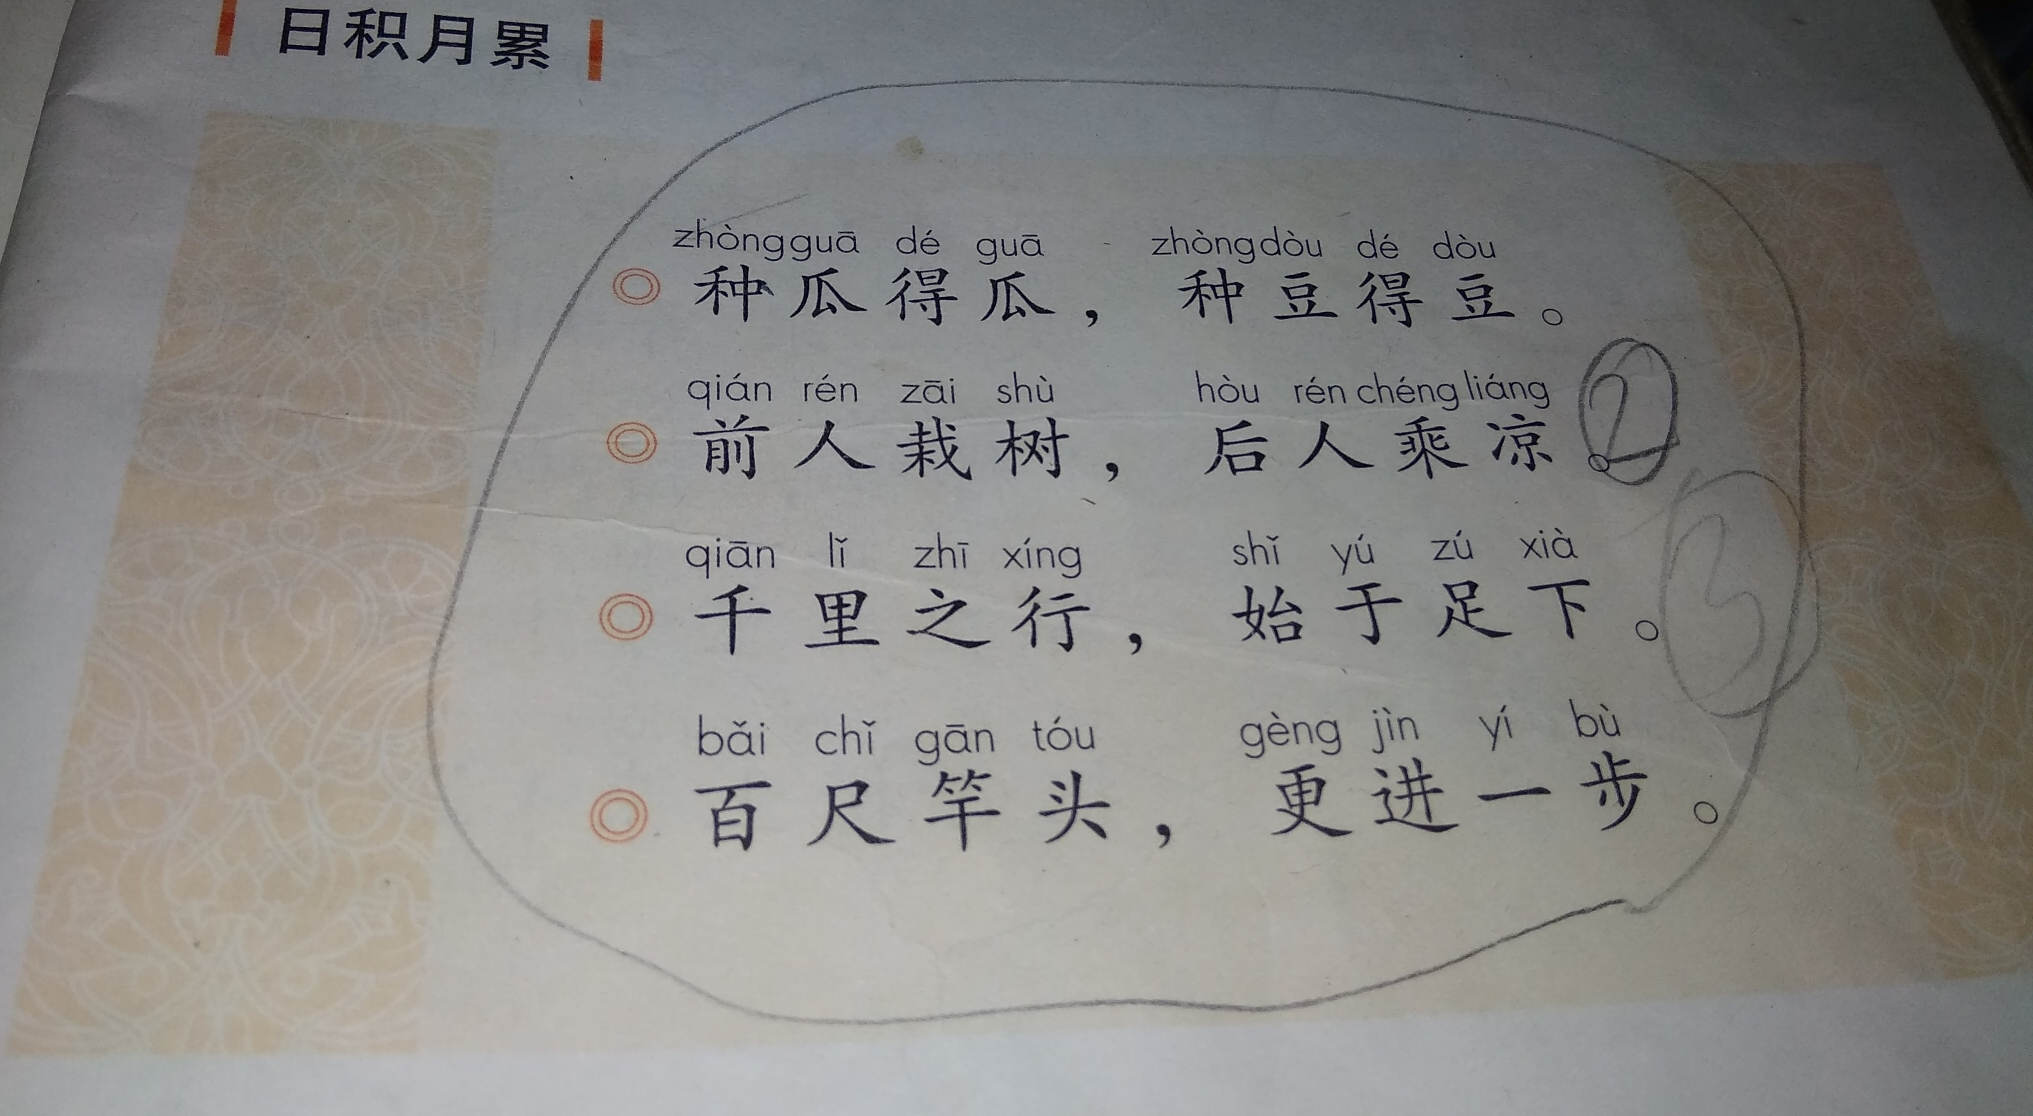 日积月累
zhòng guā dé guā zhòng dòu dé dòu
种瓜得瓜，种豆得豆。
qián rén zāi shù hòu rén chéng liáng
前人栽树，后人乘凉。②
qiān lǐ zhī xíng shǐ yú zú xià
千里之行，始于足下。③
bǎi chǐ gān tóu gèng jìn yí bù
百尺竿头，更进一步。